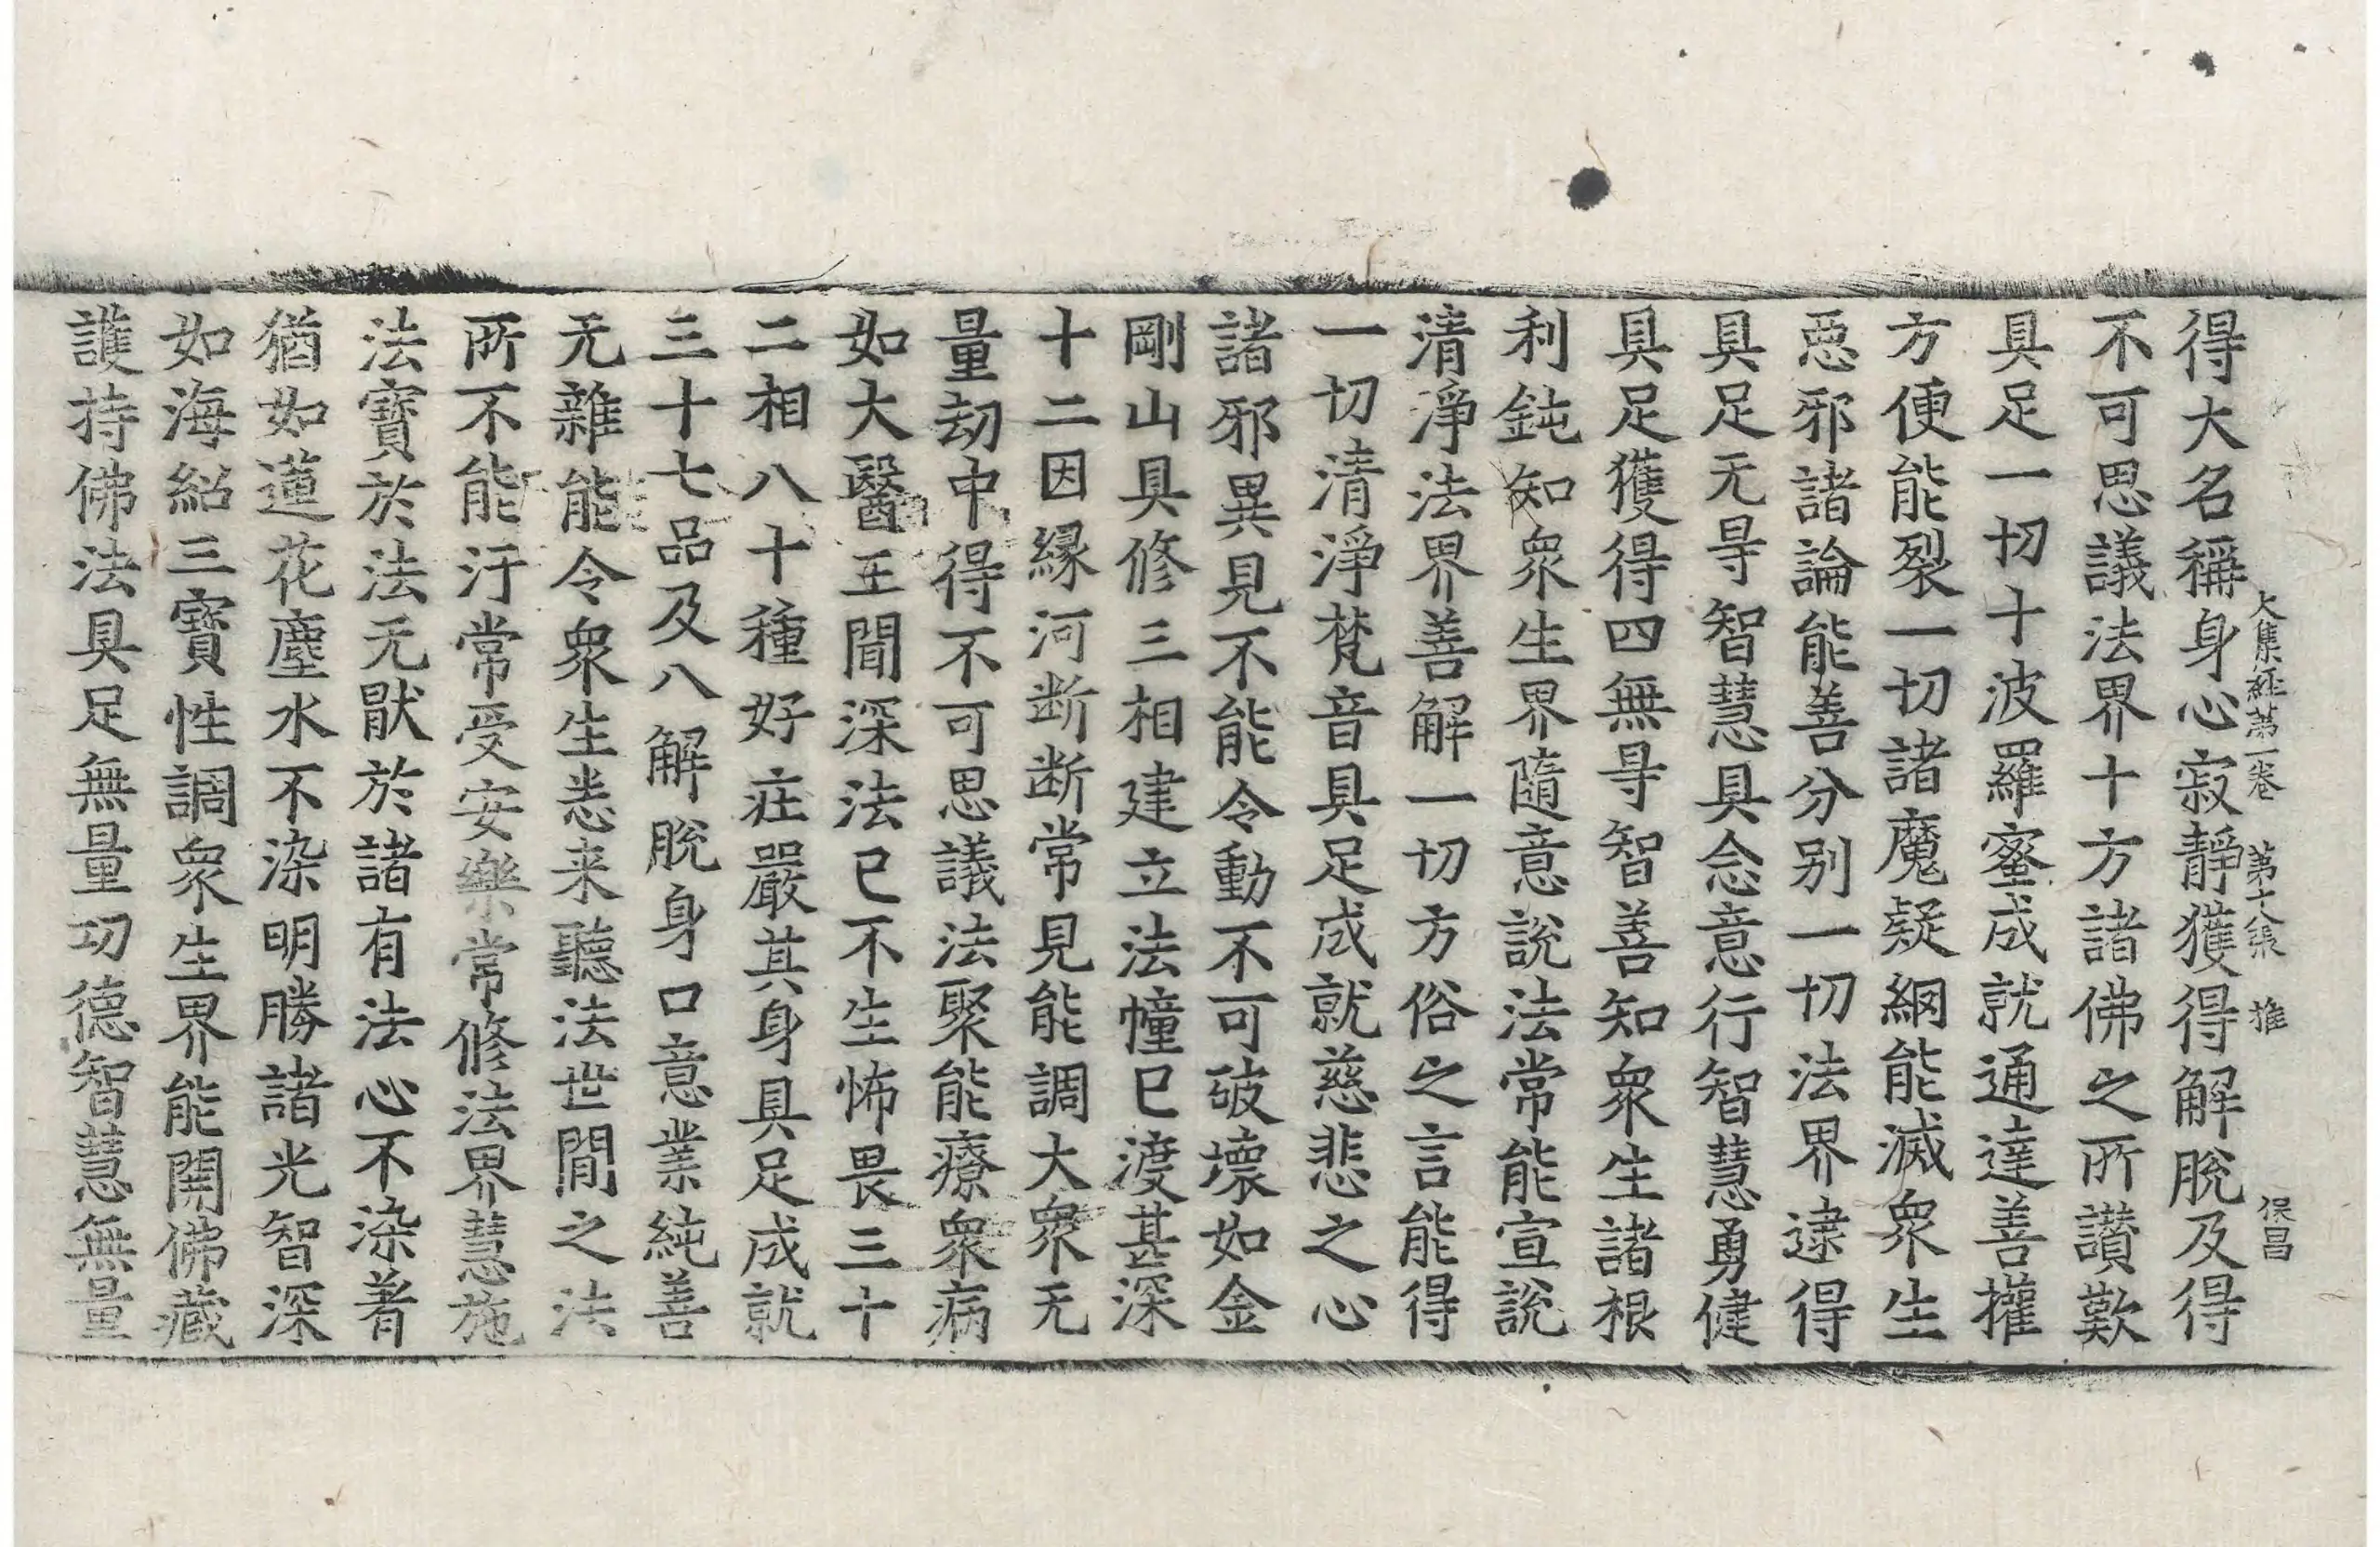 大集経第一卷　第十八張　推　保昌
得大名稱身心寂靜獲得解脫及得
不可思議法界十方諸佛之所讃歎
具足一切十波羅蜜成就通達善權
方便能裂一切諸魔疑網能滅衆生
惡邪諸論能善分别一切法界逮得
具足无㝵智慧具念意行智慧勇健
具足獲得四無㝵智善知衆生諸根
利鈍知衆生界隨意說法常能宣說
清淨法界善解一切方俗之言能得
一切清淨梵音具足成就慈悲之心
諸邪異見不能令動不可破壞如金
剛山具修三相建立法幢已渡甚深
十二因縁河断断常見能調大衆无
量劫中得不可思議法聚能療衆病
如大醫王聞深法已不生怖畏三十
二相八十種好莊嚴其身具足成就
三十七品及八解脫身口意業純善
无雜能令衆生悉来聽法世間之法
所不能汙常受安樂常修法界慧施
法寶於法无猒於諸有法心不染著
猶如蓮花塵水不染明勝諸光智深
如海紹三寶性調衆生界能開佛藏
護持佛法具足無量功德智慧無量